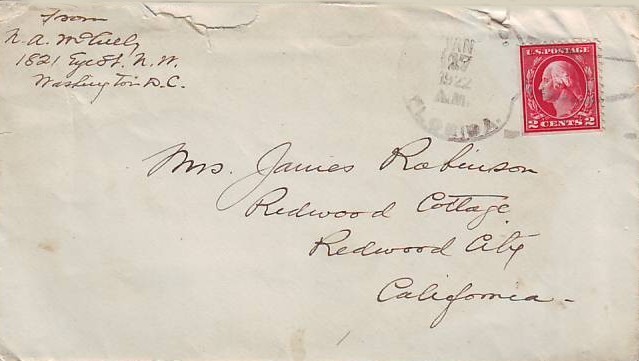 From
N. A. McCully
1821 Eye St. N. W.
Washington D.C.
JAN
27
1922
A.M.
FLORIDA.
U.S. POSTAGE
2 CENTS 2
Mrs. James Robinson
Redwood Cottage
Redwood City
California -